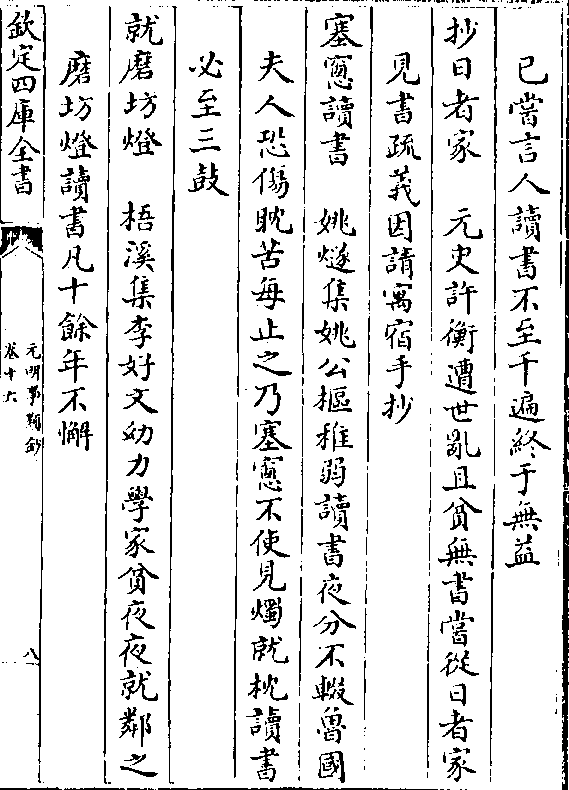 已嘗言人讀書不至千遍終于無益
抄日者家　元史許衡遭世亂且貧無書嘗從日者家
見書疏義因請寓宿手抄
塞窻讀書　姚燧集姚公樞稚弱讀書夜分不輟魯國
夫人恐傷眈苦每止之乃塞窻不使見燭就枕讀書
必至三鼓
就磨坊燈　梧溪集李好文幼力學家貧夜夜就鄰之
磨坊燈讀書凡十餘年不懈
欽定四庫全書
元明事類鈔
卷十六
八